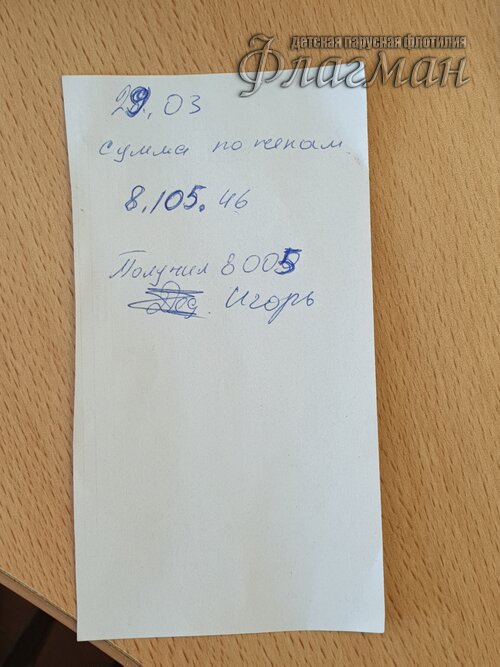 детская парусная флотилия
Флагман
29.03
Сумма по чекам
8.105.46
Получил 8005
Игорь